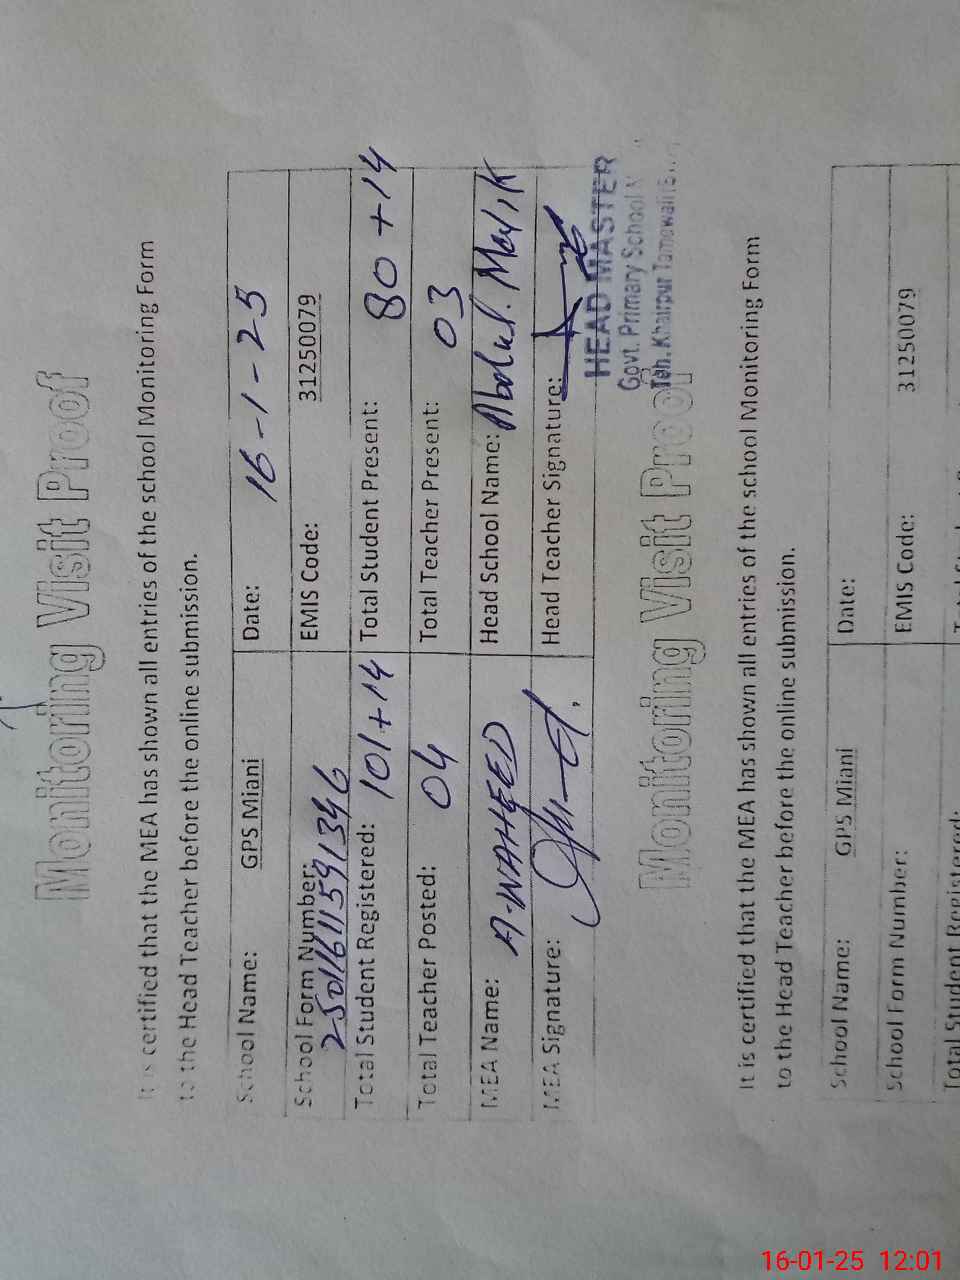 Monitoring Visit Proof
It is certified that the MEA has shown all entries of the school Monitoring Form
to the Head Teacher before the online submission.
School Name: GPS Miani Date: 16-1-25
School Form Number: EMIS Code: 31250079
Total Student Registered: 101+14 Total Student Present: 80+14
Total Teacher Posted: 04 Total Teacher Present: 03
MEA Name: A.WAHEED Head School Name: Abdul.
MEA Signature: Head Teacher Signature:
HEAD MASTER
Govt. Primary School
Teh. Khairpur Tamewali
Monitoring Visit Proof
It is certified that the MEA has shown all entries of the school Monitoring Form
to the Head Teacher before the online submission.
School Name: GPS Miani Date:
School Form Number: EMIS Code: 31250079
Total Student Registered:
16-01-25 12:01